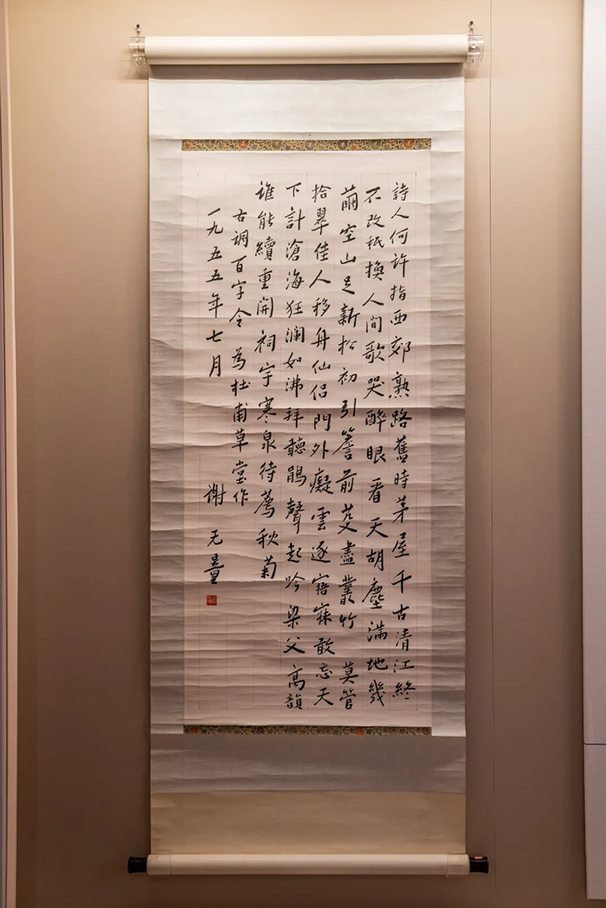 詩人何許指西郊熟路舊時茅屋千古清江終
不改祇換人間歌哭醉眼看天胡塵滿地幾
繭空山足新松初引簷前芟盡叢竹 莫管
拾翠佳人移舟仙侶門外癡雲逐寤寐敢忘天
下計滄海狂瀾如沸拜聽鵑聲起吟梁父高韻
誰能續重開祠宇寒泉待薦秋菊
古调百字令 為杜甫草堂作
一九五五年七月 谢无量